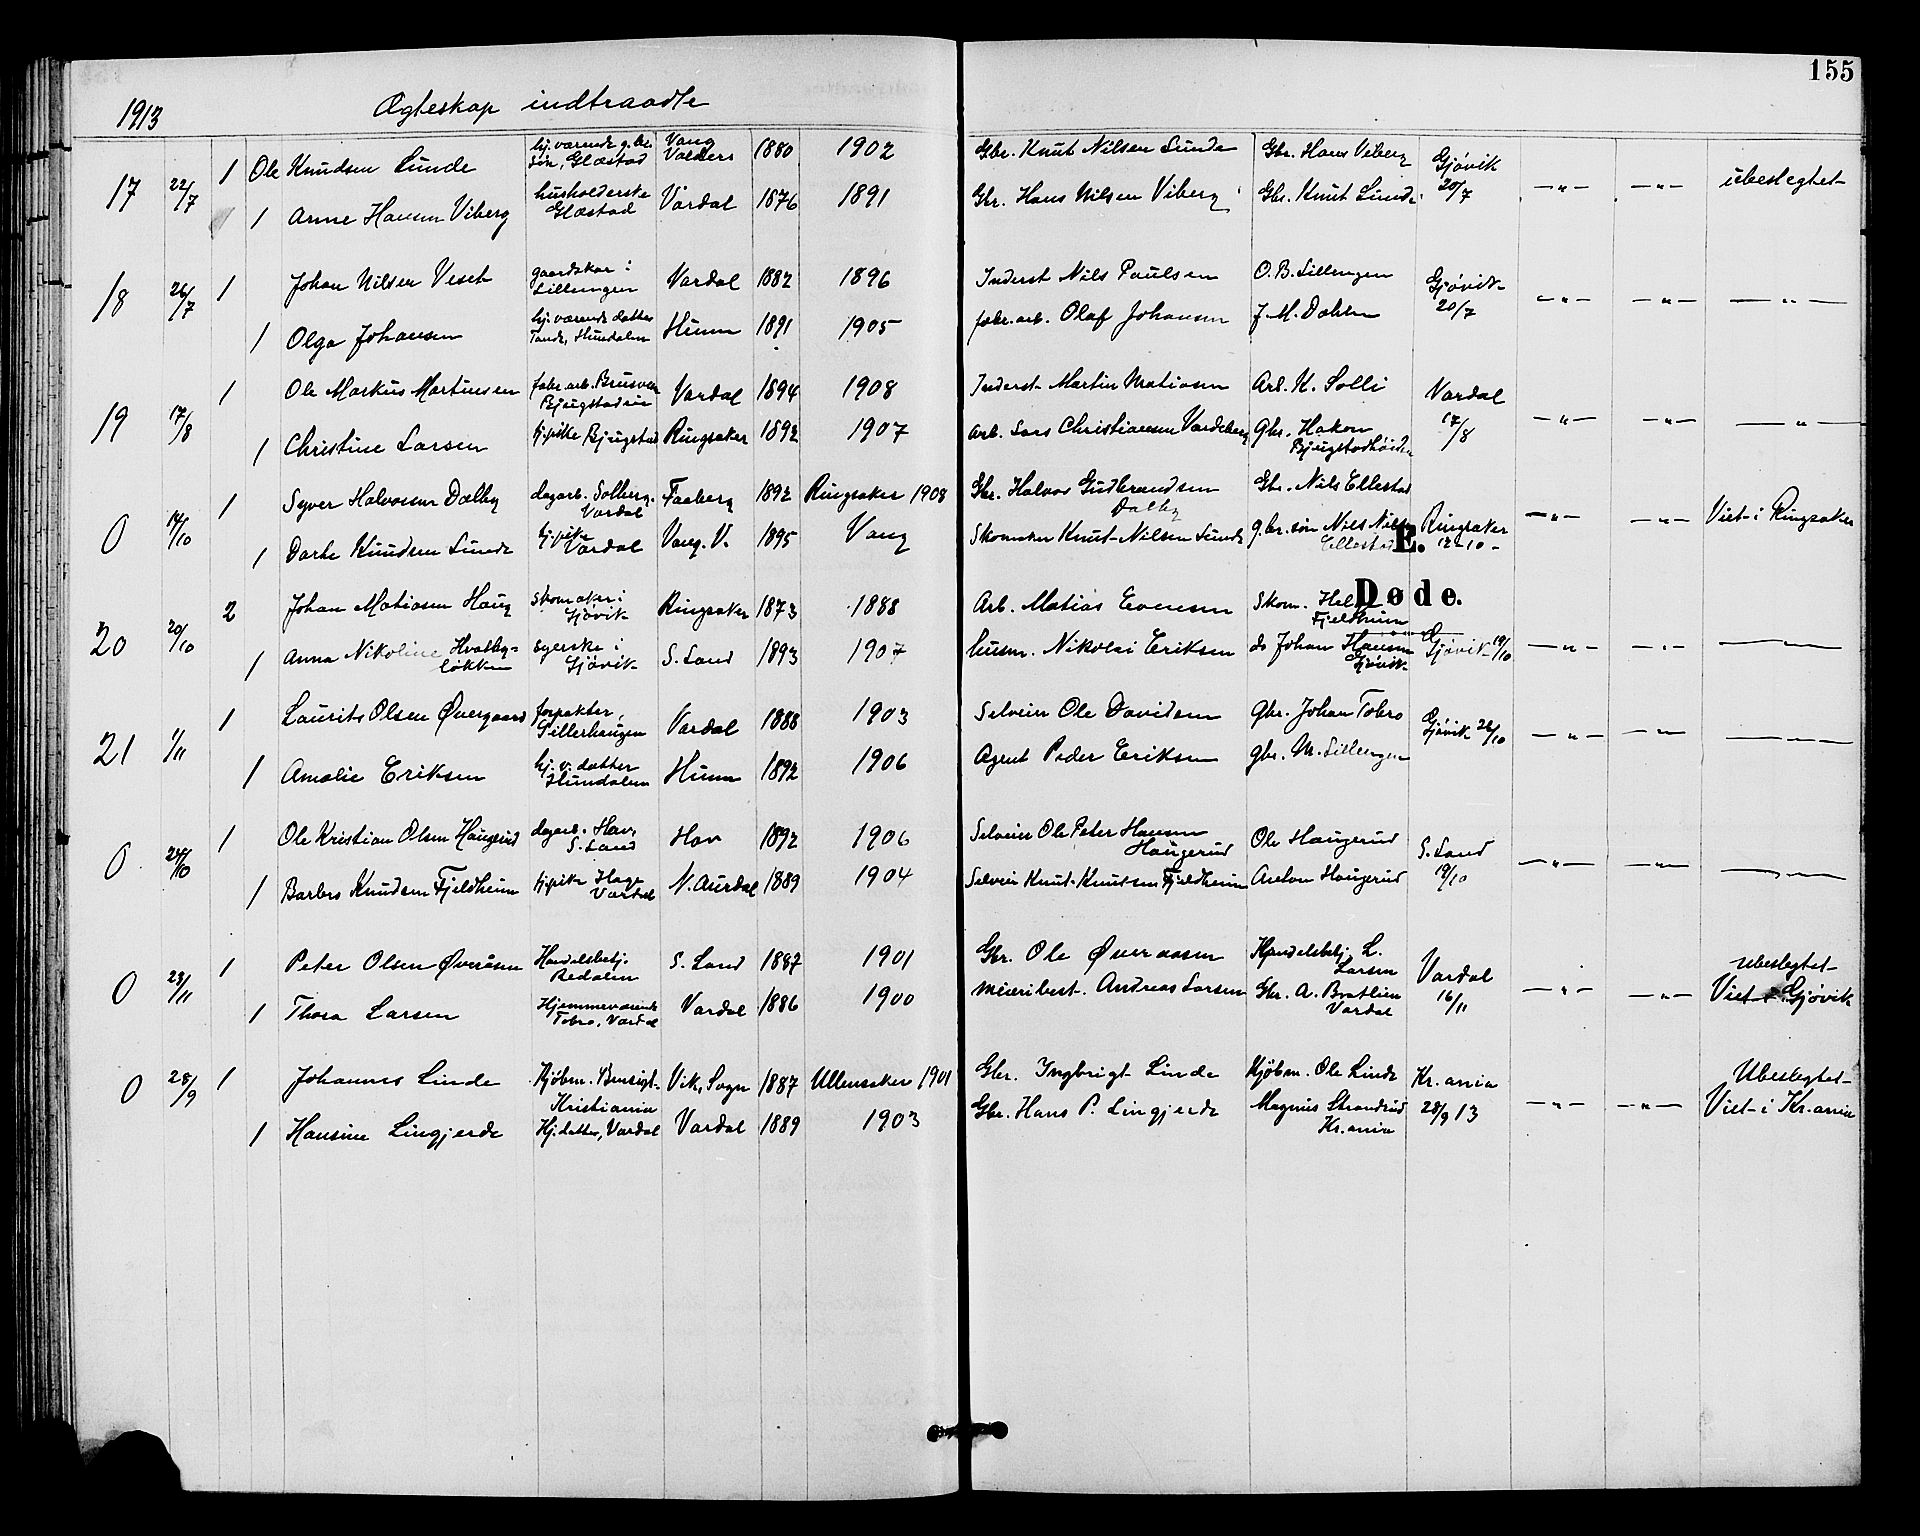 155
1913 Ægteskap indtraadte
17 22/7 1 Ole Knudsen Lunde hj.værende g.br. søn, Glæstad Vang Valders 1880 1902 Gbr. Knut Nilsen Lunde Gbr. Hans Viberg Gjøvik 20/7 —"— —"— ubeslegtet
1 Anne Hansen Viberg husholderske Glæstad Vardal 1876 1891 Gbr. Hans Nilsen Viberg Gbr. Knut Lunde
18 26/7 1 Johan Nilsen Veset gaardskar i Lillengen Vardal 1882 1896 Inderst Nils Paulsen O. B. Lillengen Gjøvik 20/7 —"— —"— —"—
1 Olga Johansen hj.værende datter Hunn 1891 1905 fabr.arb. Olaf Johansen J. M. Dahlen
19 17/8 1 Ole Markus Martinsen fabr.arb. Vardal 1894 1908 Inderst Martin Matiasen Arb. K. Solli Vardal 17/8 —"— —"— —"—
1 Christine Larsen hj.pike Bjugstad Ringsaker 1892 1907 Arb. Lars Christiansen Gbr. Hakon
0 14/10 1 Syver Halvorsen Dalby dagarb. Solberg, Vardal Faaberg 1892 Ringsaker 1908 Gbr. Halvor Gudbrandsen Dalby Gbr. Nils Ellestad Ringsaker 12-10- —"— —"— Viet i Ringsaker
1 Dorte Knudsen Lunde hj.pike Vardal Vang. V. 1895 Vang Skomaker Knut Nilsen Lunde g.br. søn Nils Nilsen Ellestad
E.
Døde.
20 20/10 2 Johan Matiasen Haug skomaker i Gjøvik Ringsaker 1873 1888 Arb. Matias Evensen Skom. Helge Fjeldheim Gjøvik 19/10 —"— —"— —"—
1 Anna Nikoline Hvalbyløkken syerske i Gjøvik S. Land 1893 1907 husm. Nikolai Eriksen do Johan Hansen Gjøvik
21 1/11 1 Laurits Olsen Øvergaard forpakter, Vardal 1888 1903 Selveier Ole Davidsen Gbr. Johan Tobro Gjøvik 26/10 —"— —"— —"—
1 Amalie Eriksen hj.v. datter Hundalen Hunn 1892 1906 Agent Peder Eriksen gbr. M. Lillengen
0 24/10 1 Ole Kristian Olsen Haugerud dagarb. Hov, S. Land Hov 1892 1906 Selveier Ole Peter Hansen Haugerud Ole Haugerud S. Land 19/10 —"— —"— —"—
1 Barbro Knudsen Fjeldheim hj.pike Hage Vardal N. Aurdal 1889 1904 Selveier Knut Knutsen Fjeldheim Anton Haugerud
0 23/11 1 Peter Olsen Øveråsen Handelsbetj. Redalen S. Land 1887 1901 Gbr. Ole Øveraasen Handelsbetj. L. Larsen Vardal 16/11 —"— —"— ubeslegtet Viet i Gjøvik
1 Thora Larsen Hjemmeværende Tobro, Vardal Vardal 1886 1900 meieribest. Andreas Larsen Gbr. A. Bratlien Vardal
0 28/9 1 Johannes Linde Kjøbm. Kristiania Vik, Sogn 1887 Ullensaker 1901 Gbr. Ingbrigt Linde Kjøbm. Ole Linde Kr.ania 28/9 13 —"— —"— Ubeslegtet Viet i Kr.ania
1 Hansine Lingjerde Hj.datter, Vardal Vardal 1889 1903 Gbr. Hans P. Lingjerde Magnus Strandrud Kr.ania